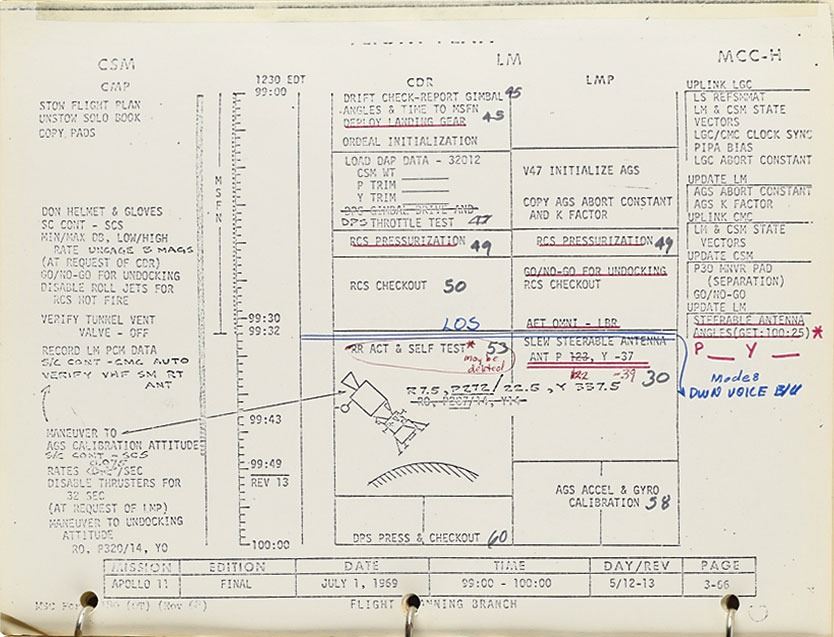 CSM
LM
MCC-H
CMP
1230 EDT
99:00
CDR
LMP
STOW FLIGHT PLAN
UNSTOW SOLO BOOK
COPY PADS
DON HELMET & GLOVES
SC CONT - SCS
MIN/MAX DB, LOW/HIGH
RATE UNCAGE 3 MAGS
(AT REQUEST OF CDR)
GO/NO-GO FOR UNDOCKING
DISABLE ROLL JETS FOR
RCS HOT FIRE
VERIFY TUNNEL VENT
VALVE - OFF
RECORD LM PCM DATA
S/C CONT-CMC AUTO
VERIFY VHF SM RT
ANT
MANEUVER TO
AGS CALIBRATION ATTITUDE
S/C CONT - SCS
RATES /SEC
DISABLE THRUSTERS FOR
32 SEC
(AT REQUEST OF LMP)
MANEUVER TO UNDOCKING
ATTITUDE
RO, P320/14, YO
MSFN
99:30
99:32
99:43
99:49
REV 13
100:00
DRIFT CHECK-REPORT GIMBAL 45
ANGLES & TIME TO MSFN
DEPLOY LANDING GEAR 45
ORDEAL INITIALIZATION
LOAD DAP DATA - 32012
CSM WT
P TRIM
Y TRIM
DPS GIMBAL DRIVE AND
DPS THROTTLE TEST 47
RCS PRESSURIZATION 49
RCS CHECKOUT 50
LOS
RR ACT & SELF TEST* 53
may be
deleted
R7.5, P272/22.5, Y 337.5
DPS PRESS & CHECKOUT 60
V47 INITIALIZE AGS
COPY AGS ABORT CONSTANT
AND K FACTOR
RCS PRESSURIZATION 49
GO/NO-GO FOR UNDOCKING
RCS CHECKOUT
AFT OMNI - LBR
SLEW STEERABLE ANTENNA
ANT P 123, Y -37
122 -39 30
AGS ACCEL & GYRO
CALIBRATION 58
UPLINK LGC
LS REFSMMAT
LM & CSM STATE
VECTORS
LGC/CMC CLOCK SYNC
PIPA BIAS
LGC ABORT CONSTANT
UPDATE LM
AGS ABORT CONSTANT
AGS K FACTOR
UPLINK CMC
LM & CSM STATE
VECTORS
UPDATE CSM
P30 MNVR PAD
(SEPARATION)
GO/NO-GO
UPDATE LM
STEERABLE ANTENNA
ANGLES(GET:100:25)*
P__ Y __
Mode 8
DWN VOICE B/U
MISSION EDITION DATE TIME DAY/REV PAGE
APOLLO 11 FINAL JULY 1, 1969 99:00 - 100:00 5/12-13 3-66
FLIGHT PLANNING BRANCH